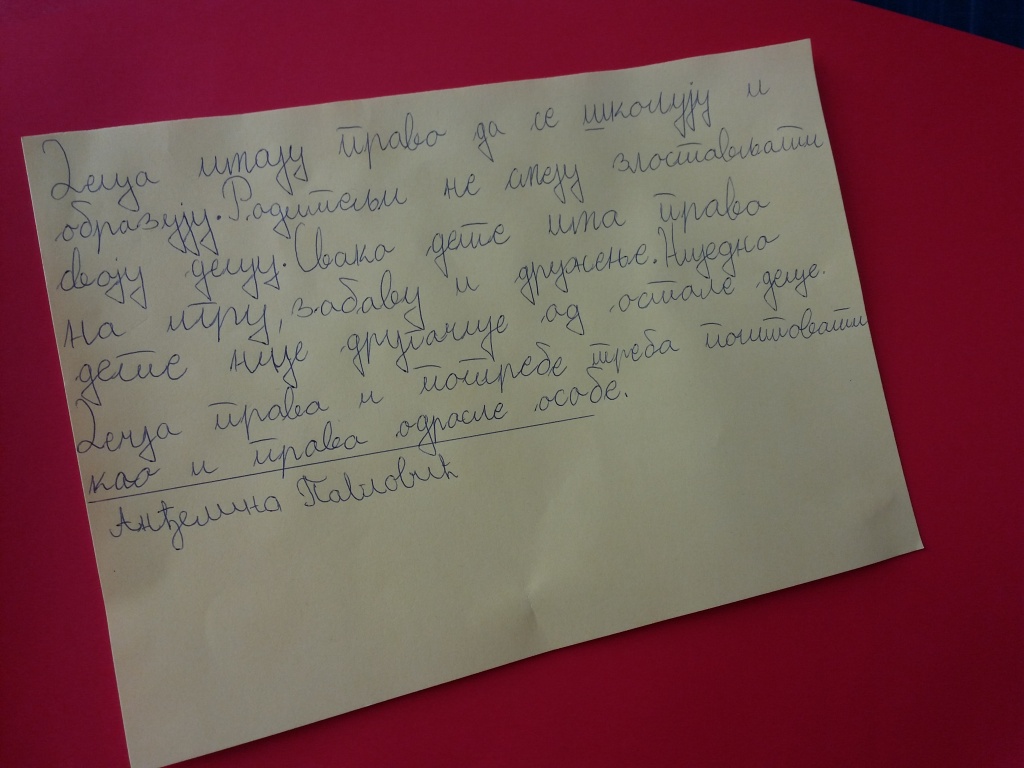 Деца имају права да се школују и
образују. Родитељи не смеју злостављати
своју децу. Свако дете има права
на игру, забаву и дружење. Ниједно
дете није другачије од остале деце.
Дечја права и потребе треба поштовати
као и права одрасле особе.
Анђелина Павловић